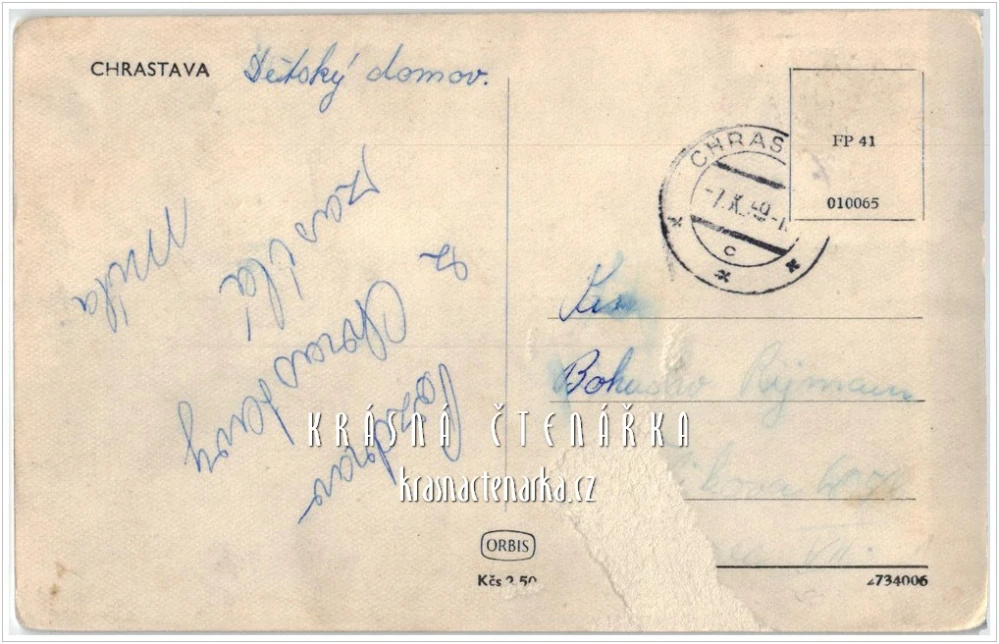 CHRASTAVA Dětský domov.
Pozdrav
z Chrastavy
zasílá
Míla
CHRAS
-7.X.59-1
c
FP 41
010065
Bohuslav Rýmaun
KRÁSNÁ ČTENÁŘKA
krasnactenarka.cz
ORBIS
Kčs 2,50
734006